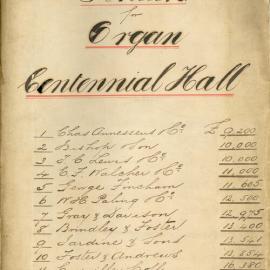 for
Organ
Centennial Hall
1 Chas Anneessens & Co. £ 9,200
2 Bishop & Son 10,000
3 T. C. Lewis & Co. 10,000
4 E. F. Walcker & Co. 11,000
5 George Fincham 11,605
6 W. H. Paling & Co. 12,500
7 Gray & Davison 12,975
8 Brindley & Foster 13,400
9 Jardine & Sons 13,541
10 Forster & Andrews 13,854
16,380